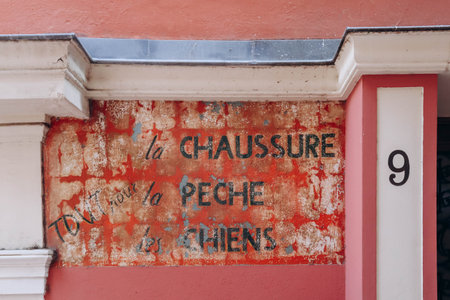 la CHAUSSURE
TOUT pour la PECHE
les CHIENS
9